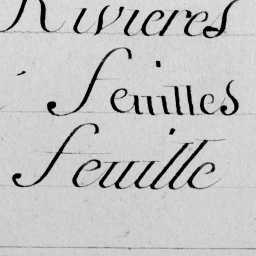 Rivieres
feuilles
feuille